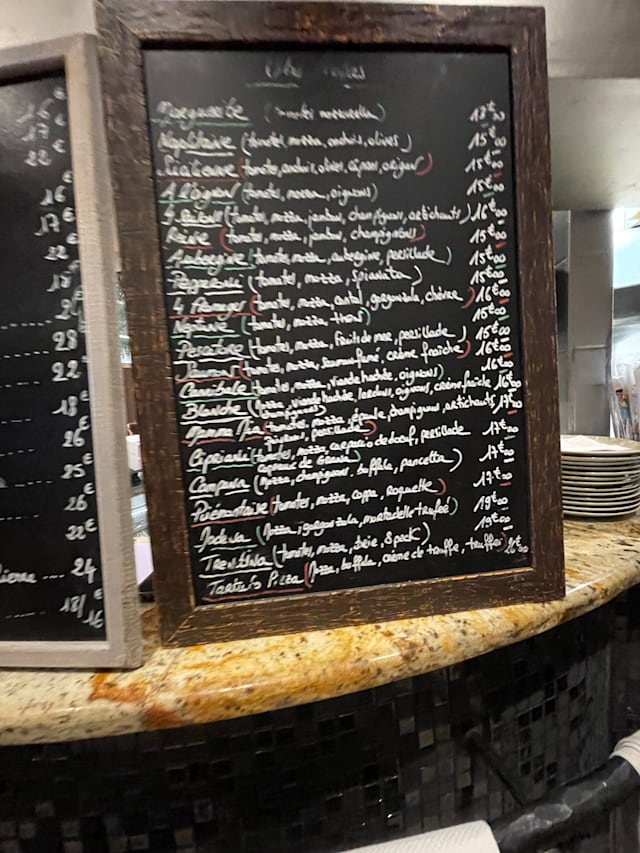 16€
17€
22€
16€
17€
22€
18€
28€
22€
18€
26€
25€
26€
22€
24
18/16
Margueritte (tomates mozzarella)
Napolitaine (tomates, mozza, anchois, olives) 15€00
Sicilienne (tomates, anchois, olives, câpres, origan) 15€00
A l'oignon (tomates, mozza, oignons) 15€00
4 Saisons (tomates, mozza, jambon, champignons, artichauts) 16€00
Reine (tomates, mozza, jambon, champignons) 15€00
Aubergine (tomates, mozza, aubergine, persillade) 15€00
(tomates, mozza, spianata) 15€00
4 Fromages (tomates, mozza, cantal, gorgonzola, chèvre) 16€00
Neptune (tomates, mozza, thon) 15€00
Pescatore (tomates, mozza, fruits de mer, persillade) 15€00
Saumon (tomates, mozza, saumon fumé, crème fraîche) 16€00
Cannibale (tomates, mozza, viande hachée, oignons) 16€00
Blanche (mozza, viande hachée, lardons, oignons, crème fraîche 16€00
champignons)
Mamma Mia (tomates, mozza, épaule, champignons, artichauts 17€00
persillade)
Cipriani (tomates, mozza carpaccio de boeuf, persillade 17€00
copeaux de Grana)
Campana (mozza, champignons, buffala, pancetta) 17€00
Piémontaise (tomates, mozza, coppa, roquette) 17€00
(mozza, gorgonzola, mortadelle truffée) 19€00
Trentina (tomates, mozza, brie, speck) 19€00
Tartufo Pizza (mozza, buffala, crème de truffe, truffes)